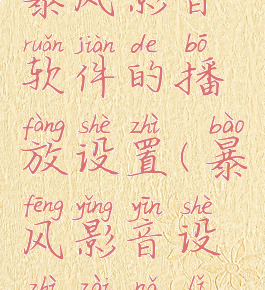 暴风影音
ruǎn jiàn de bō
软件的播
fàng shè zhì bào
放设置(暴
fēng yǐng yīn shè
风影音设
zhì zài nǎ lǐ